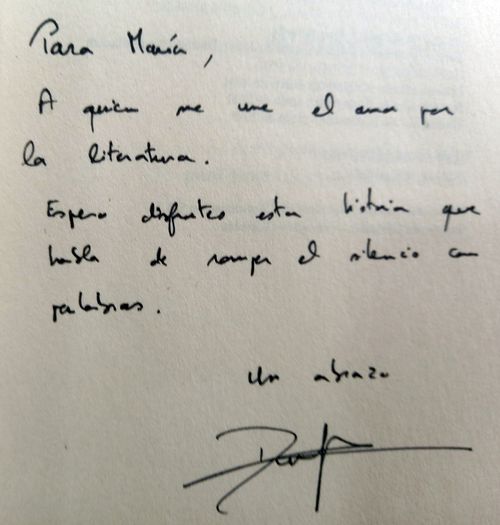 Para María,
A quien me une el amor por
la literatura.
Espero disfrutes esta historia que
habla de romper el silencio con
palabras.
Un abrazo